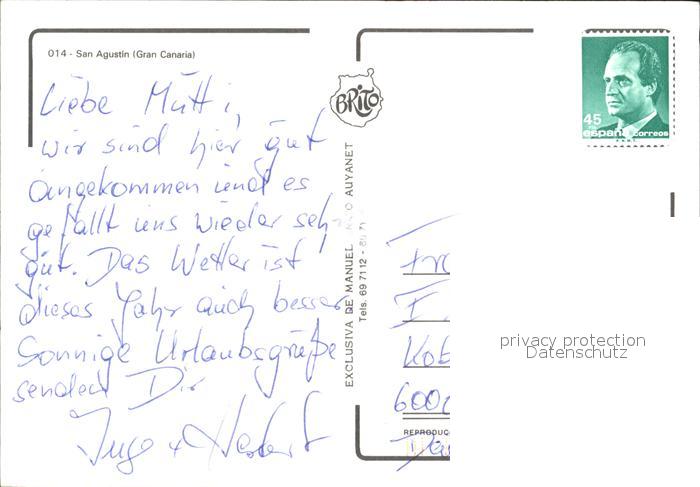 014 - San Agustín (Gran Canaria)
Liebe Mutti,
wir sind hier gut
angekommen und es
gefällt uns wieder sehr
gut. Das Wetter ist
dieses Jahr auch besser
Sonnige Urlaubsgrüße
senden Dir
Inge + Herbert
BRITO
EXCLUSIVA DE MANUEL AUYANET
Tels. 69 71 12 -
45
españa correos
F.N.M.T.
Fra
F
Kob
600
REPRODUC
privacy protection
Datenschutz